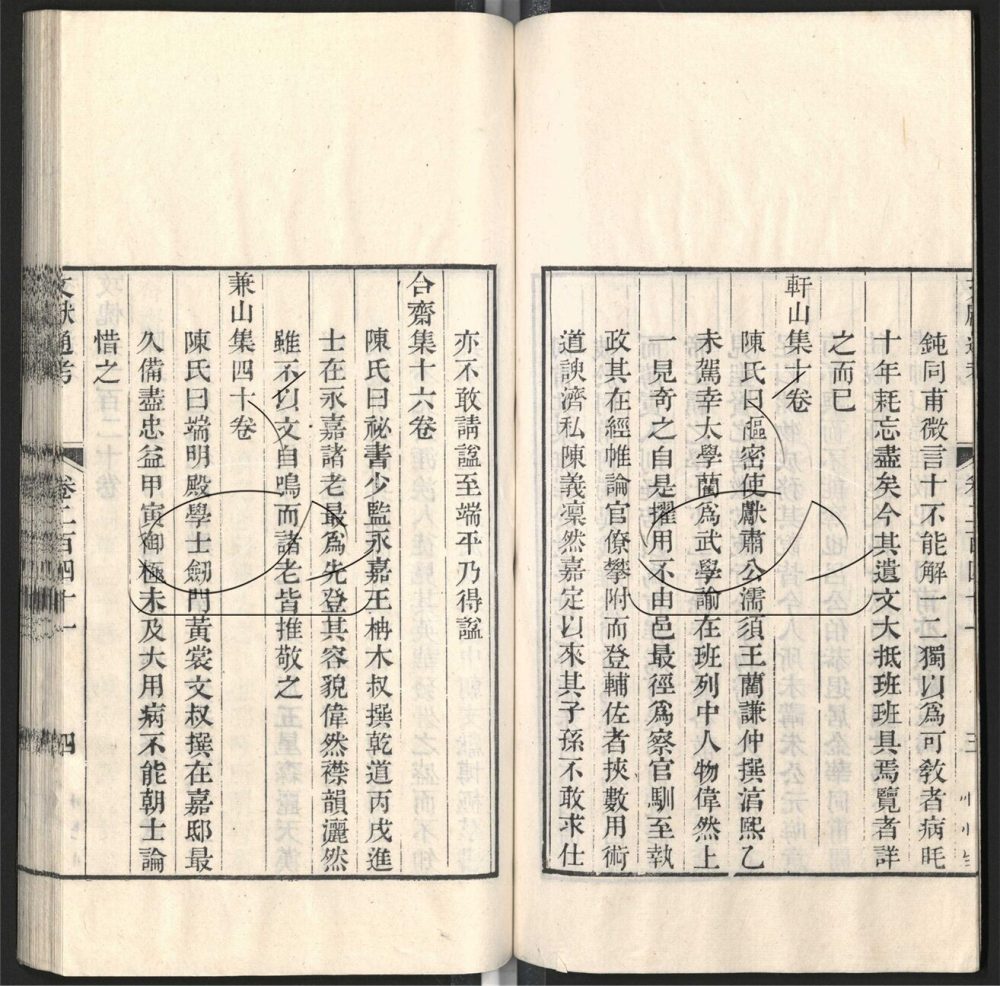 鈍同甫微言十不能解一二獨以爲可敎者病眊
十年耗忘盡矣今其遺文大抵班班具焉覽者詳
之而已
軒山集十卷
陳氏曰樞密使獻肅公濡須王藺謙仲撰淳熙乙
未駕幸太學藺爲武學諭在班列中人物偉然上
一見奇之自是擢用不由邑最徑爲察官馴至執
政其在經帷論官僚攀附而登輔佐者挾數用術
道諛濟私陳義凜然嘉定以來其子孫不敢求仕
亦不敢請諡至端平乃得諡
合齋集十六卷
陳氏曰祕書少監永嘉王柟木叔撰乾道丙戌進
士在永嘉諸老最爲先登其容貌偉然襟韻灑然
雖不以文自鳴而諸老皆推敬之
兼山集四十卷
陳氏曰端明殿學士劒門黃裳文叔撰在嘉邸最
久備盡忠益甲寅御極未及大用病不能朝士論
惜之
文獻通考 卷二百四十一 四